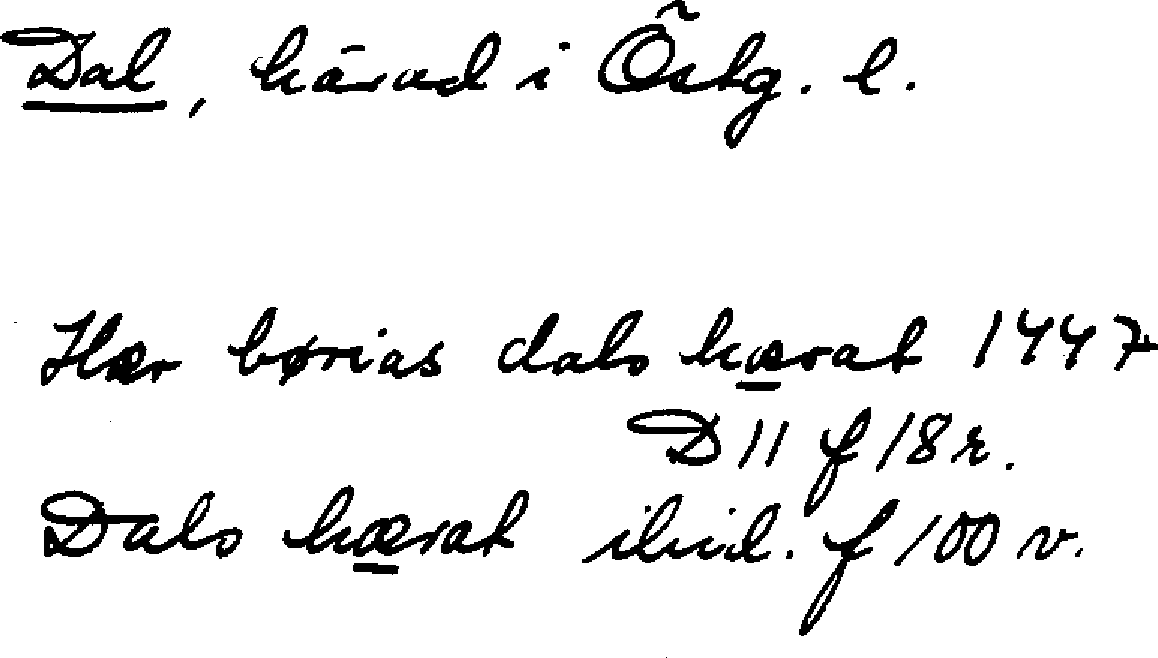 Dal, härad i Östg. l.
Hær børias dals hærat 1447
D 11 f 18 r.
Dals hærat ibid. f 100 v.